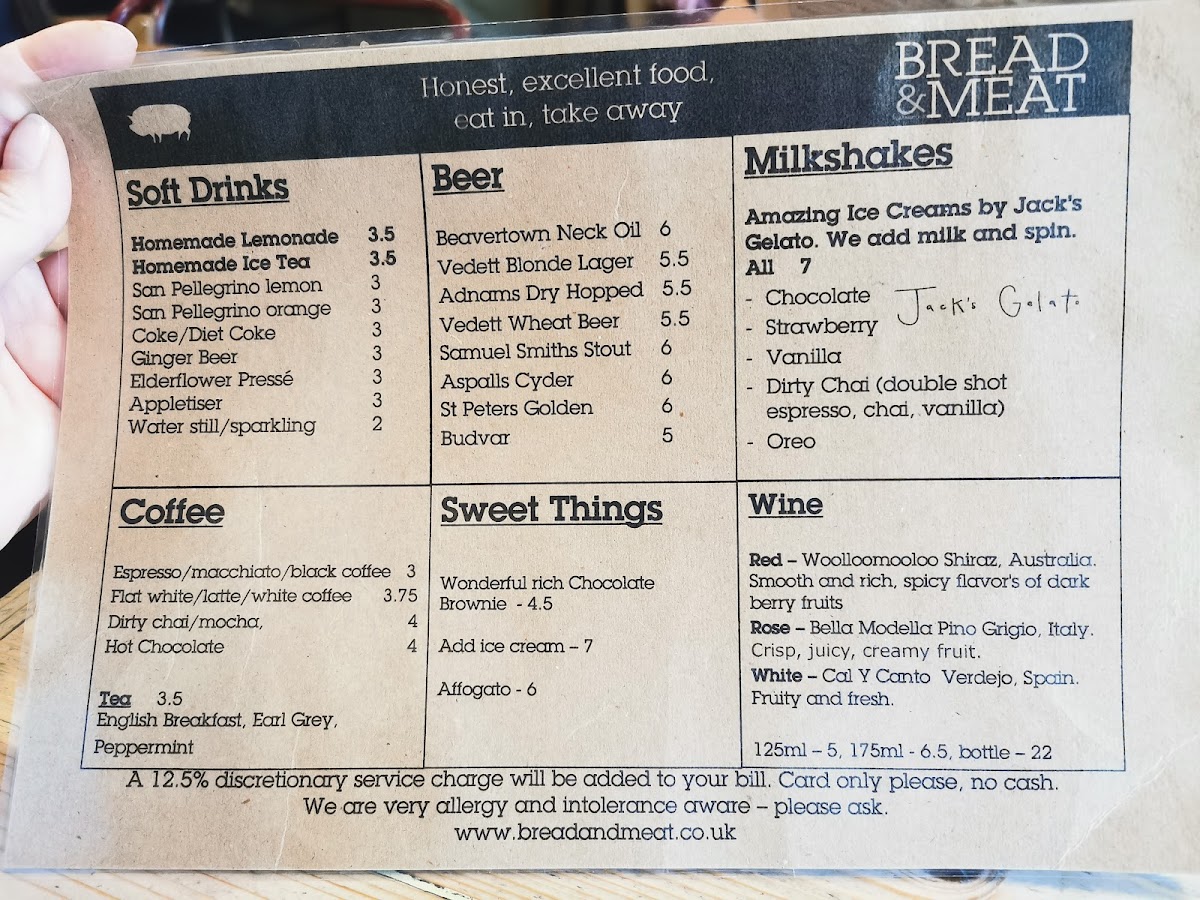 Honest, excellent food,
eat in, take away
BREAD
&MEAT
Soft Drinks
Homemade Lemonade 3.5
Homemade Ice Tea 3.5
San Pellegrino lemon 3
San Pellegrino orange 3
Coke/Diet Coke 3
Ginger Beer 3
Elderflower Pressé 3
Appletiser 3
Water still/sparkling 2
Beer
Beavertown Neck Oil 6
Vedett Blonde Lager 5.5
Adnams Dry Hopped 5.5
Vedett Wheat Beer 5.5
Samuel Smiths Stout 6
Aspalls Cyder 6
St Peters Golden 6
Budvar 5
Milkshakes
Amazing Ice Creams by Jack's
Gelato. We add milk and spin.
All 7
- Chocolate
- Strawberry
Jack's Gelato
- Vanilla
- Dirty Chai (double shot
espresso, chai, vanilla)
- Oreo
Coffee
Espresso/macchiato/black coffee 3
Flat white/latte/white coffee 3.75
Dirty chai/mocha, 4
Hot Chocolate 4
Tea 3.5
English Breakfast, Earl Grey,
Peppermint
Sweet Things
Wonderful rich Chocolate
Brownie - 4.5
Add ice cream – 7
Affogato - 6
Wine
Red – Woolloomooloo Shiraz, Australia.
Smooth and rich, spicy flavor's of dark
berry fruits
Rose – Bella Modella Pino Grigio, Italy.
Crisp, juicy, creamy fruit.
White – Cal Y Canto Verdejo, Spain.
Fruity and fresh.
125ml – 5, 175ml - 6.5, bottle – 22
A 12.5% discretionary service charge will be added to your bill. Card only please, no cash.
We are very allergy and intolerance aware – please ask.
www.breadandmeat.co.uk